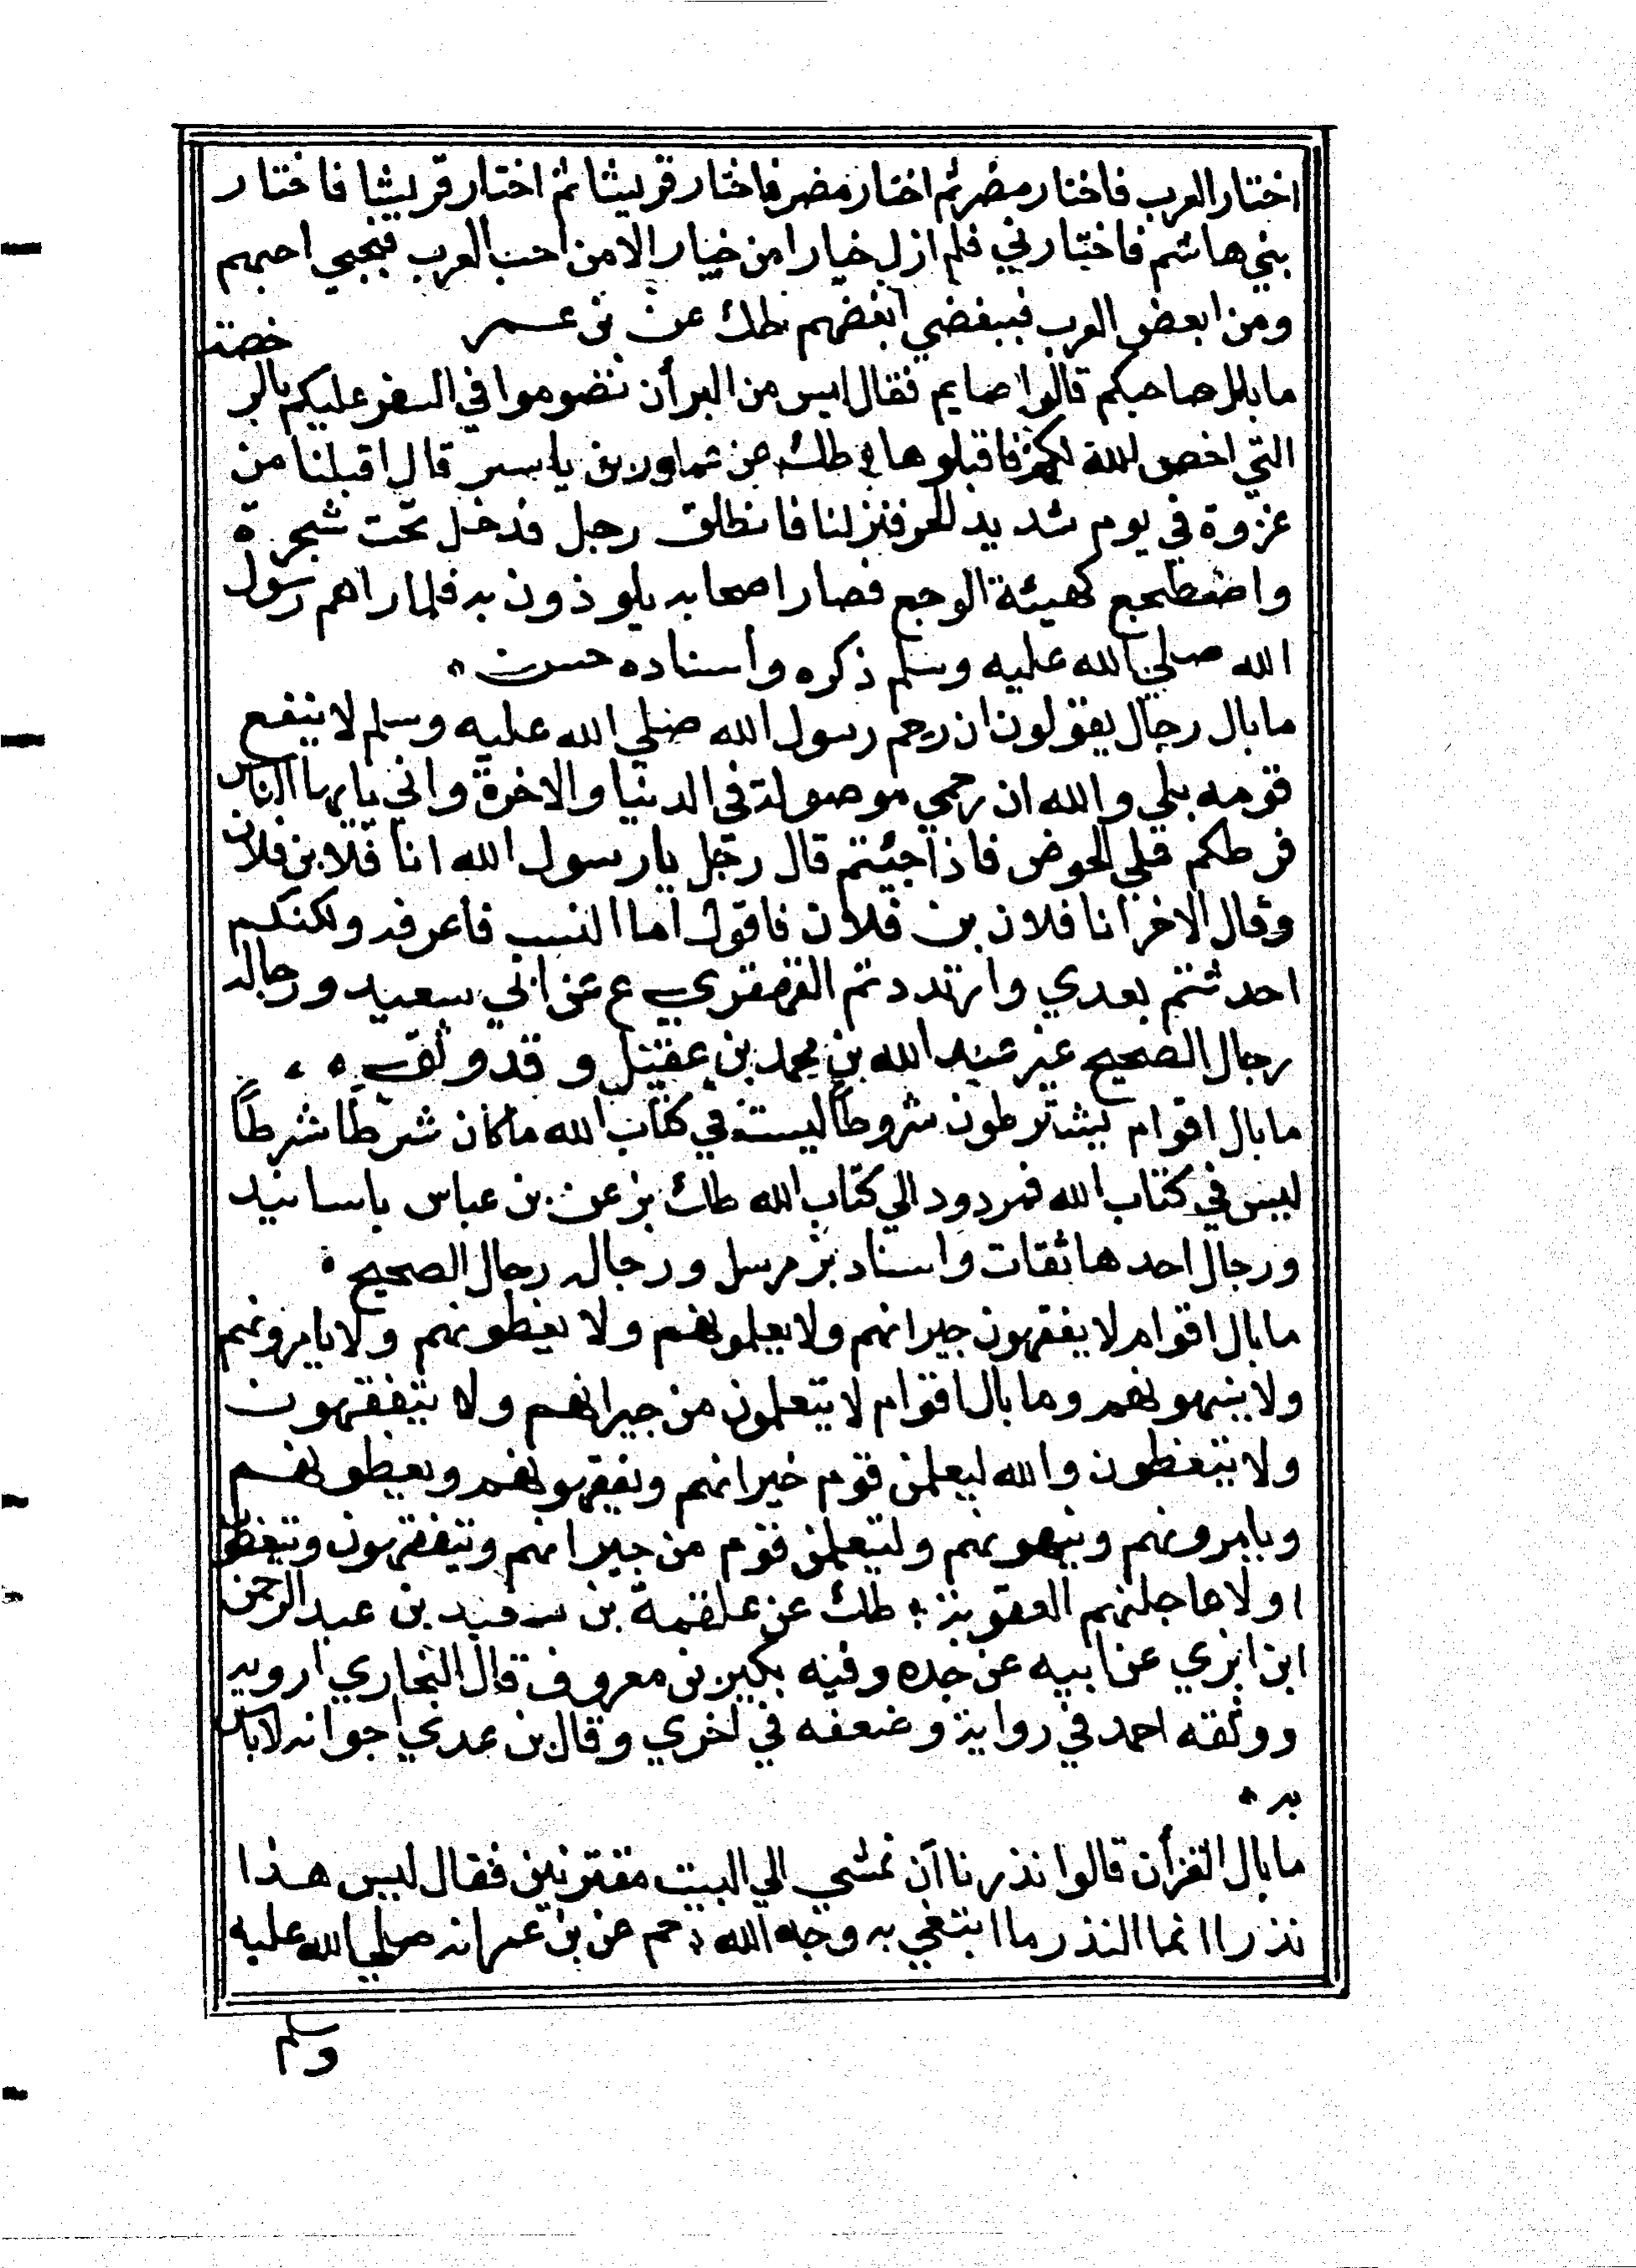 اختار العرب فاختار مضر ثم اختار مضر فاختار قريشا ثم اختار قريشا فاختار
بني هاشم فاختارني فلم ازل خيارا من خيار الا من احب العرب فبحبي احبهم
ومن ابغض العرب فببغضي ابغضهم طك عن بن عمر
خصة
ما بال صاحبكم قالوا صايم فقال ليس من البر أن تصوموا في السفر عليكم بالر
التي اخص الله لكم فاقبلوها طك عن عمار بن ياسر قال اقبلنا من
غزوة في يوم شديد الحر فنزلنا فانطلق رجل فدخل تحت شجرة
واضطجع كهيئة الوجع فصار اصحابه يلوذون به فلما راهم رسول
الله صلي الله عليه وسلم ذكره وأسناده حسن
ما بال رجال يقولون ان رحم رسول الله صلي الله عليه وسلم لا ينفع
قومه بلي والله ان رحمي موصولة في الدنيا والاخرة واني يا يها الناس
فرطكم علي الحوض فاذا جيئتم قال رجل يا رسول الله انا فلان بن فلان
وقال الاخر انا فلان بن فلان فاقول اما النسب فاعرفه ولكنكم
احدثتم بعدي وارتددتم القهقري ع عن ابي سعيد ورجاله
رجال الصحيح غير عبد الله بن محمد بن عقيل وقد وثق
ما بال اقوام يشترطون شروطاً ليست في كتاب الله ما كان شرطاً شرطاً
ليس في كتاب الله فمردود الي كتاب الله طك بز عن بن عباس باسانيد
ورجال احدها ثقات واسناد بز مرسل ورجاله رجال الصحيح
ما بال اقوام لا يفقهون جيرانهم ولا يعلمونهم ولا يعظونهم ولا يامرونهم
ولا ينهونهم وما بال اقوام لا يتعلمون من جيرانهم ولا يتفقهون
ولا يتعظون والله ليعلمن قوم جيرانهم ويفقهونهم ويعظونهم
ويامرونهم وينهونهم وليتعلمن قوم من جيرانهم ويتفقهون ويتعظون
او لاعاجلنهم العقوبة طك عن علقمة بن سعيد بن عبد الرحمن
ابن ابزي عن ابيه عن جده وفيه بكير بن معروف قال البخاري اروبه
ووثقه احمد في رواية وضعفه في اخري وقال بن عدي ارجوا انه لا باس
به
ما بال القرأن قالوا نذرنا أن نمشي الي البيت مقترنين فقال ليس هذا
نذرا انما النذر ما ابتغي به وجه الله حم عن بن عمر انه صلي الله عليه
وسلم